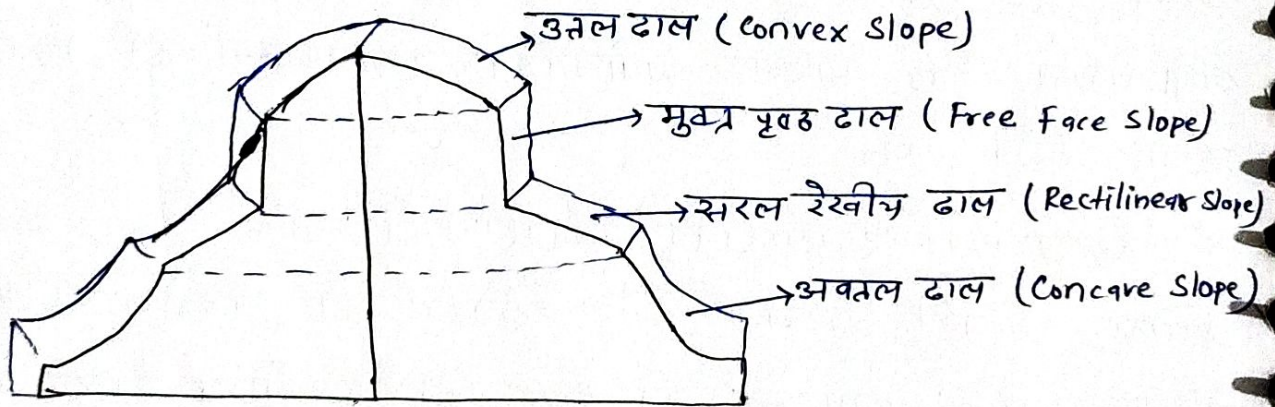 उत्तल ढाल (Convex Slope)
मुक्त पृष्ठ ढाल (Free Face Slope)
सरल रेखीय ढाल (Rectilinear Slope)
अवतल ढाल (Concave Slope)